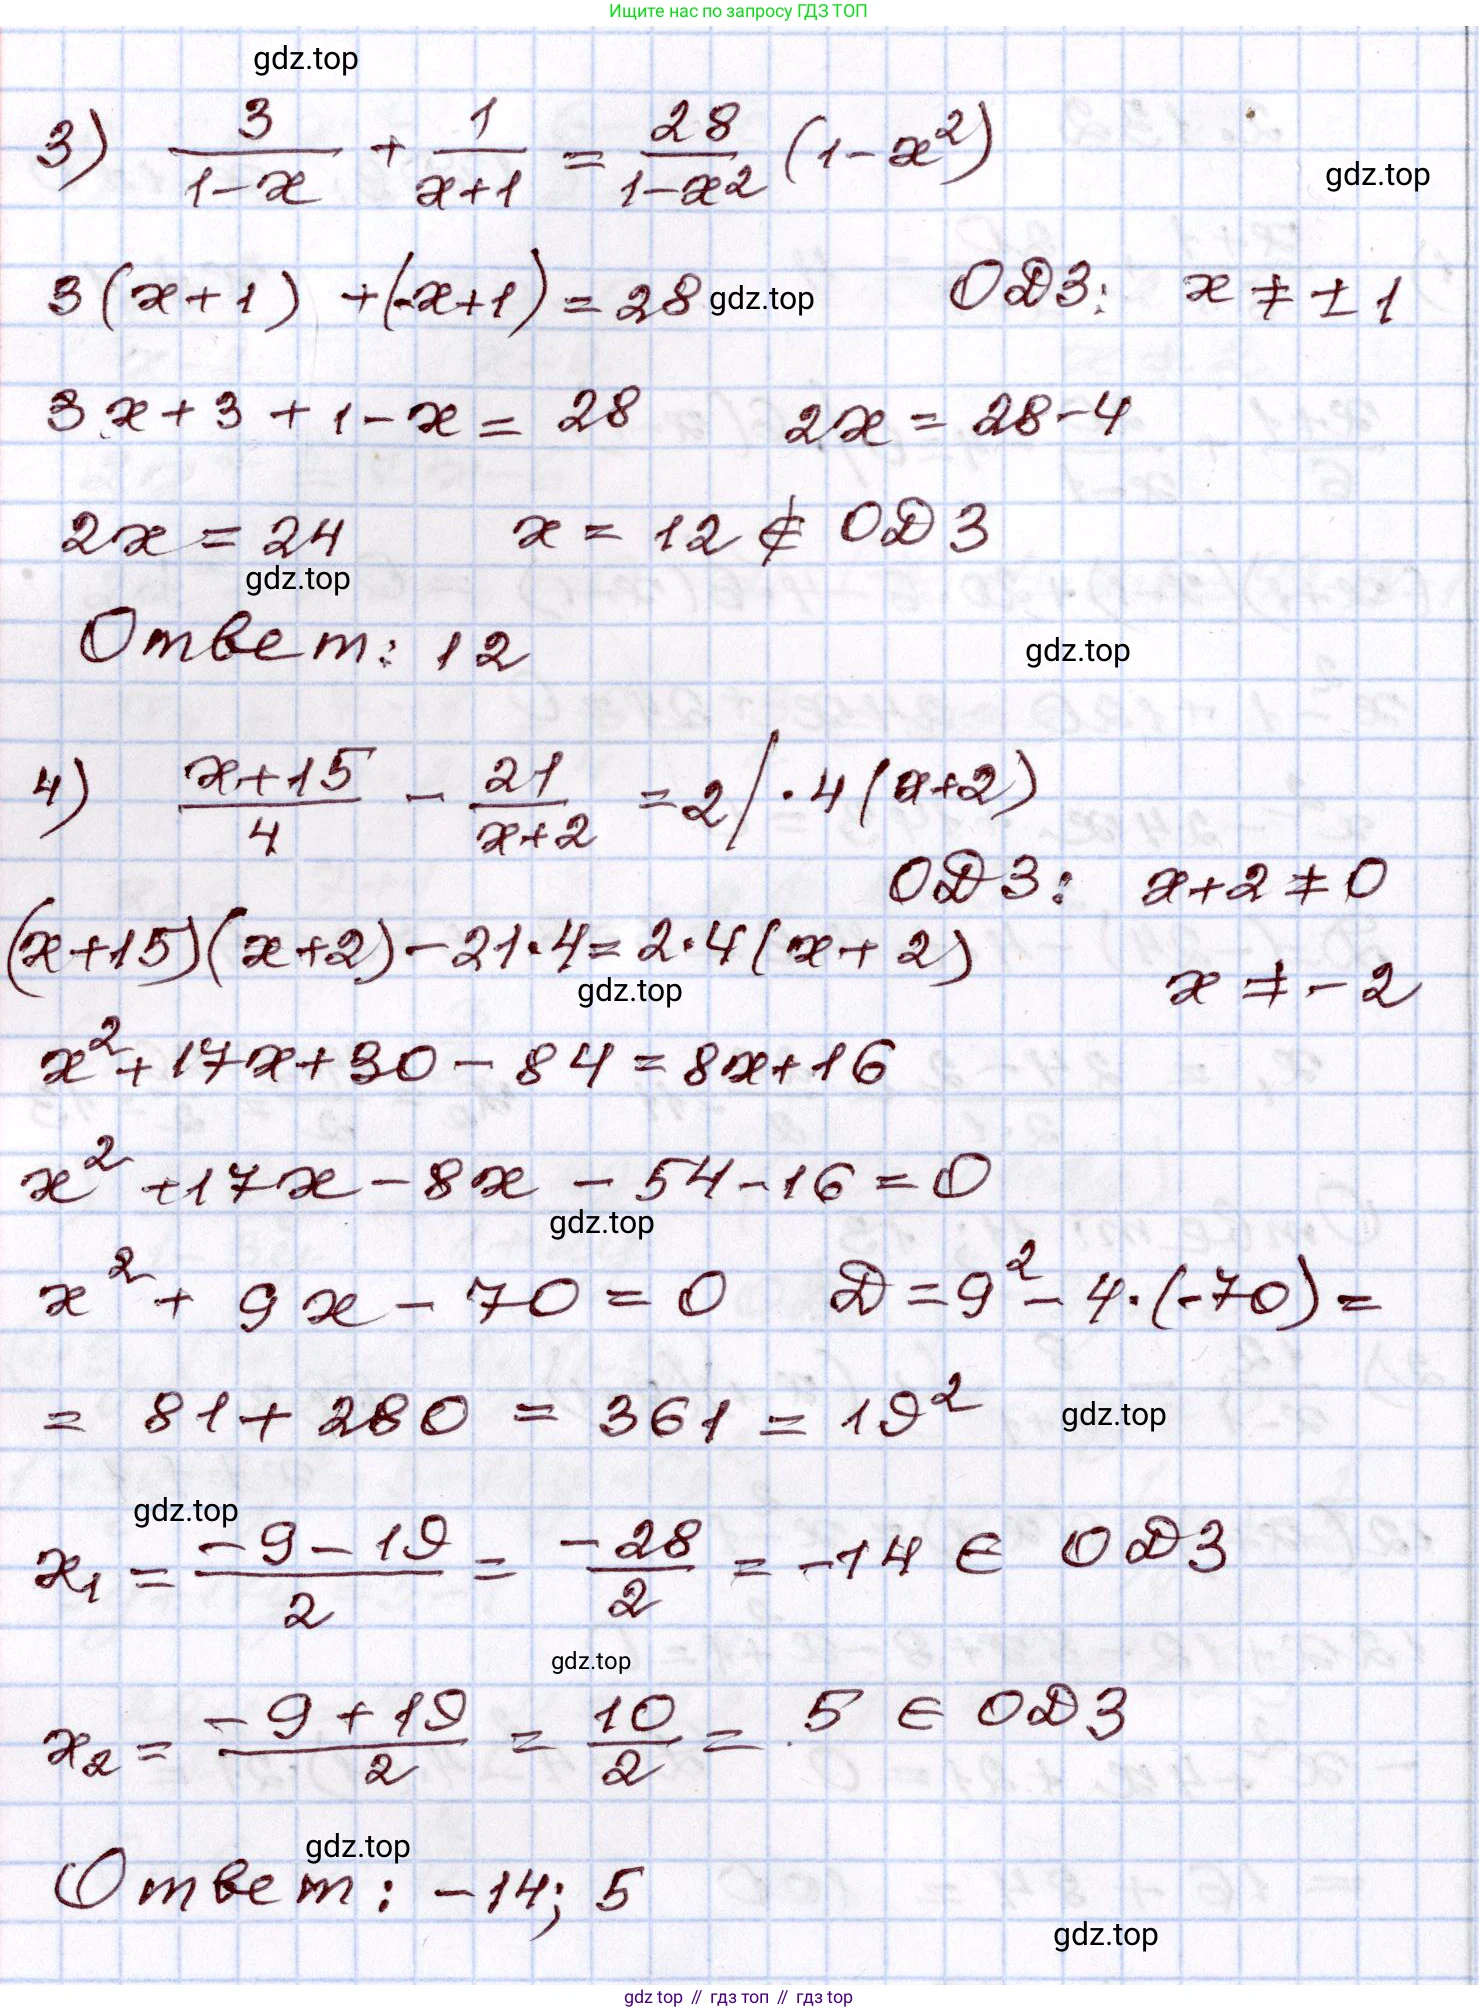 Ищите нас по запросу ГДЗ ТОП
gdz.top
3) 3/(1-x) + 1/(x+1) = 28/(1-x²) (1-x²)
gdz.top
3(x+1) +(-x+1) = 28 gdz.top ОДЗ: x ≠ ±1
3x+3+1-x = 28 2x = 28-4
2x = 24 x = 12 ∉ ОДЗ
gdz.top
Ответ: 12
gdz.top
4) (x+15)/4 - 21/(x+2) = 2 | ·4(x+2)
ОДЗ: x+2≠0
(x+15)(x+2)-21·4=2·4(x+2)
x ≠ -2
gdz.top
x²+17x+30-84=8x+16
x²+17x-8x-54-16=0
gdz.top
x²+9x-70=0 Д=9²-4·(-70)=
= 81+280 = 361 = 19² gdz.top
gdz.top
x₁ = (-9-19)/2 = -28/2 = -14 ∈ ОДЗ
gdz.top
x₂ = (-9+19)/2 = 10/2 = 5 ∈ ОДЗ
gdz.top
Ответ: -14; 5
gdz.top
gdz top // гдз топ // гдз top